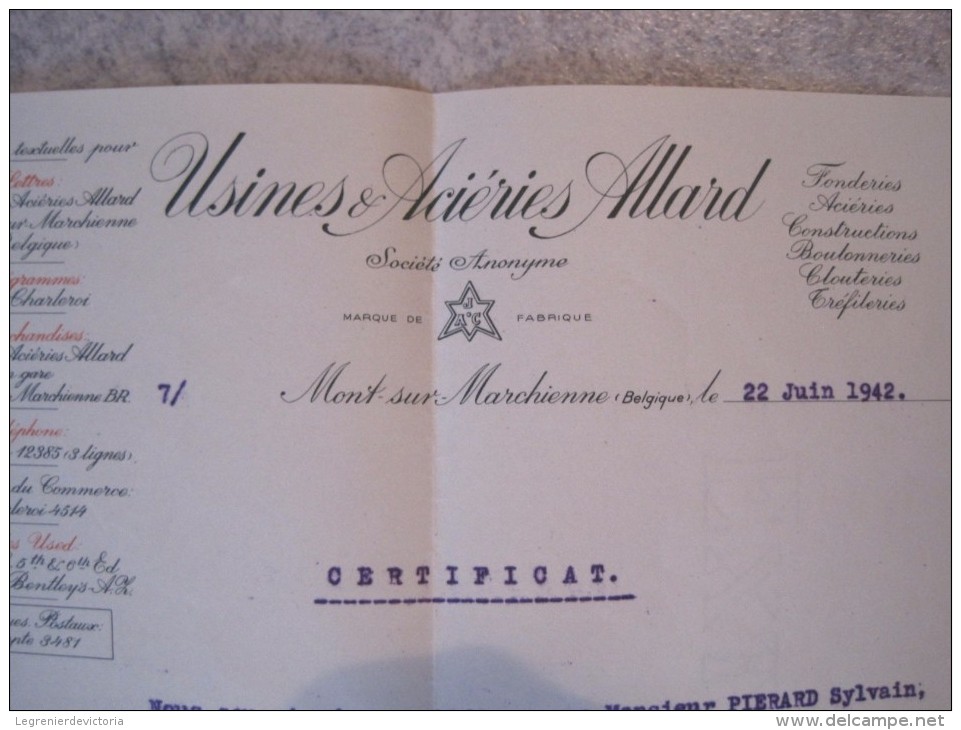 textuelles pour
Lettres:
Aciéries Allard
ur-Marchienne
Belgique)
grammes:
Charleroi
chandises:
Aciéries Allard
gare
Marchienne BR.
éphone:
12385 (3 lignes).
du Commerce:
leroi 4514
es Used:
5th & 6th Ed
Bentley's-A.Z.
ues Postaux:
pte 3481
Usines & Aciéries Allard
Société Anonyme
MARQUE DE
J
A&C
FABRIQUE
Fonderies
Aciéries
Constructions
Boulonneries
Clouteries
Tréfileries
7/
Mont-sur-Marchienne (Belgique), le 22 Juin 1942.
CERTIFICAT.
Nous Monsieur PIERARD Sylvain,
Legrenierdevictoria
delcampe.net